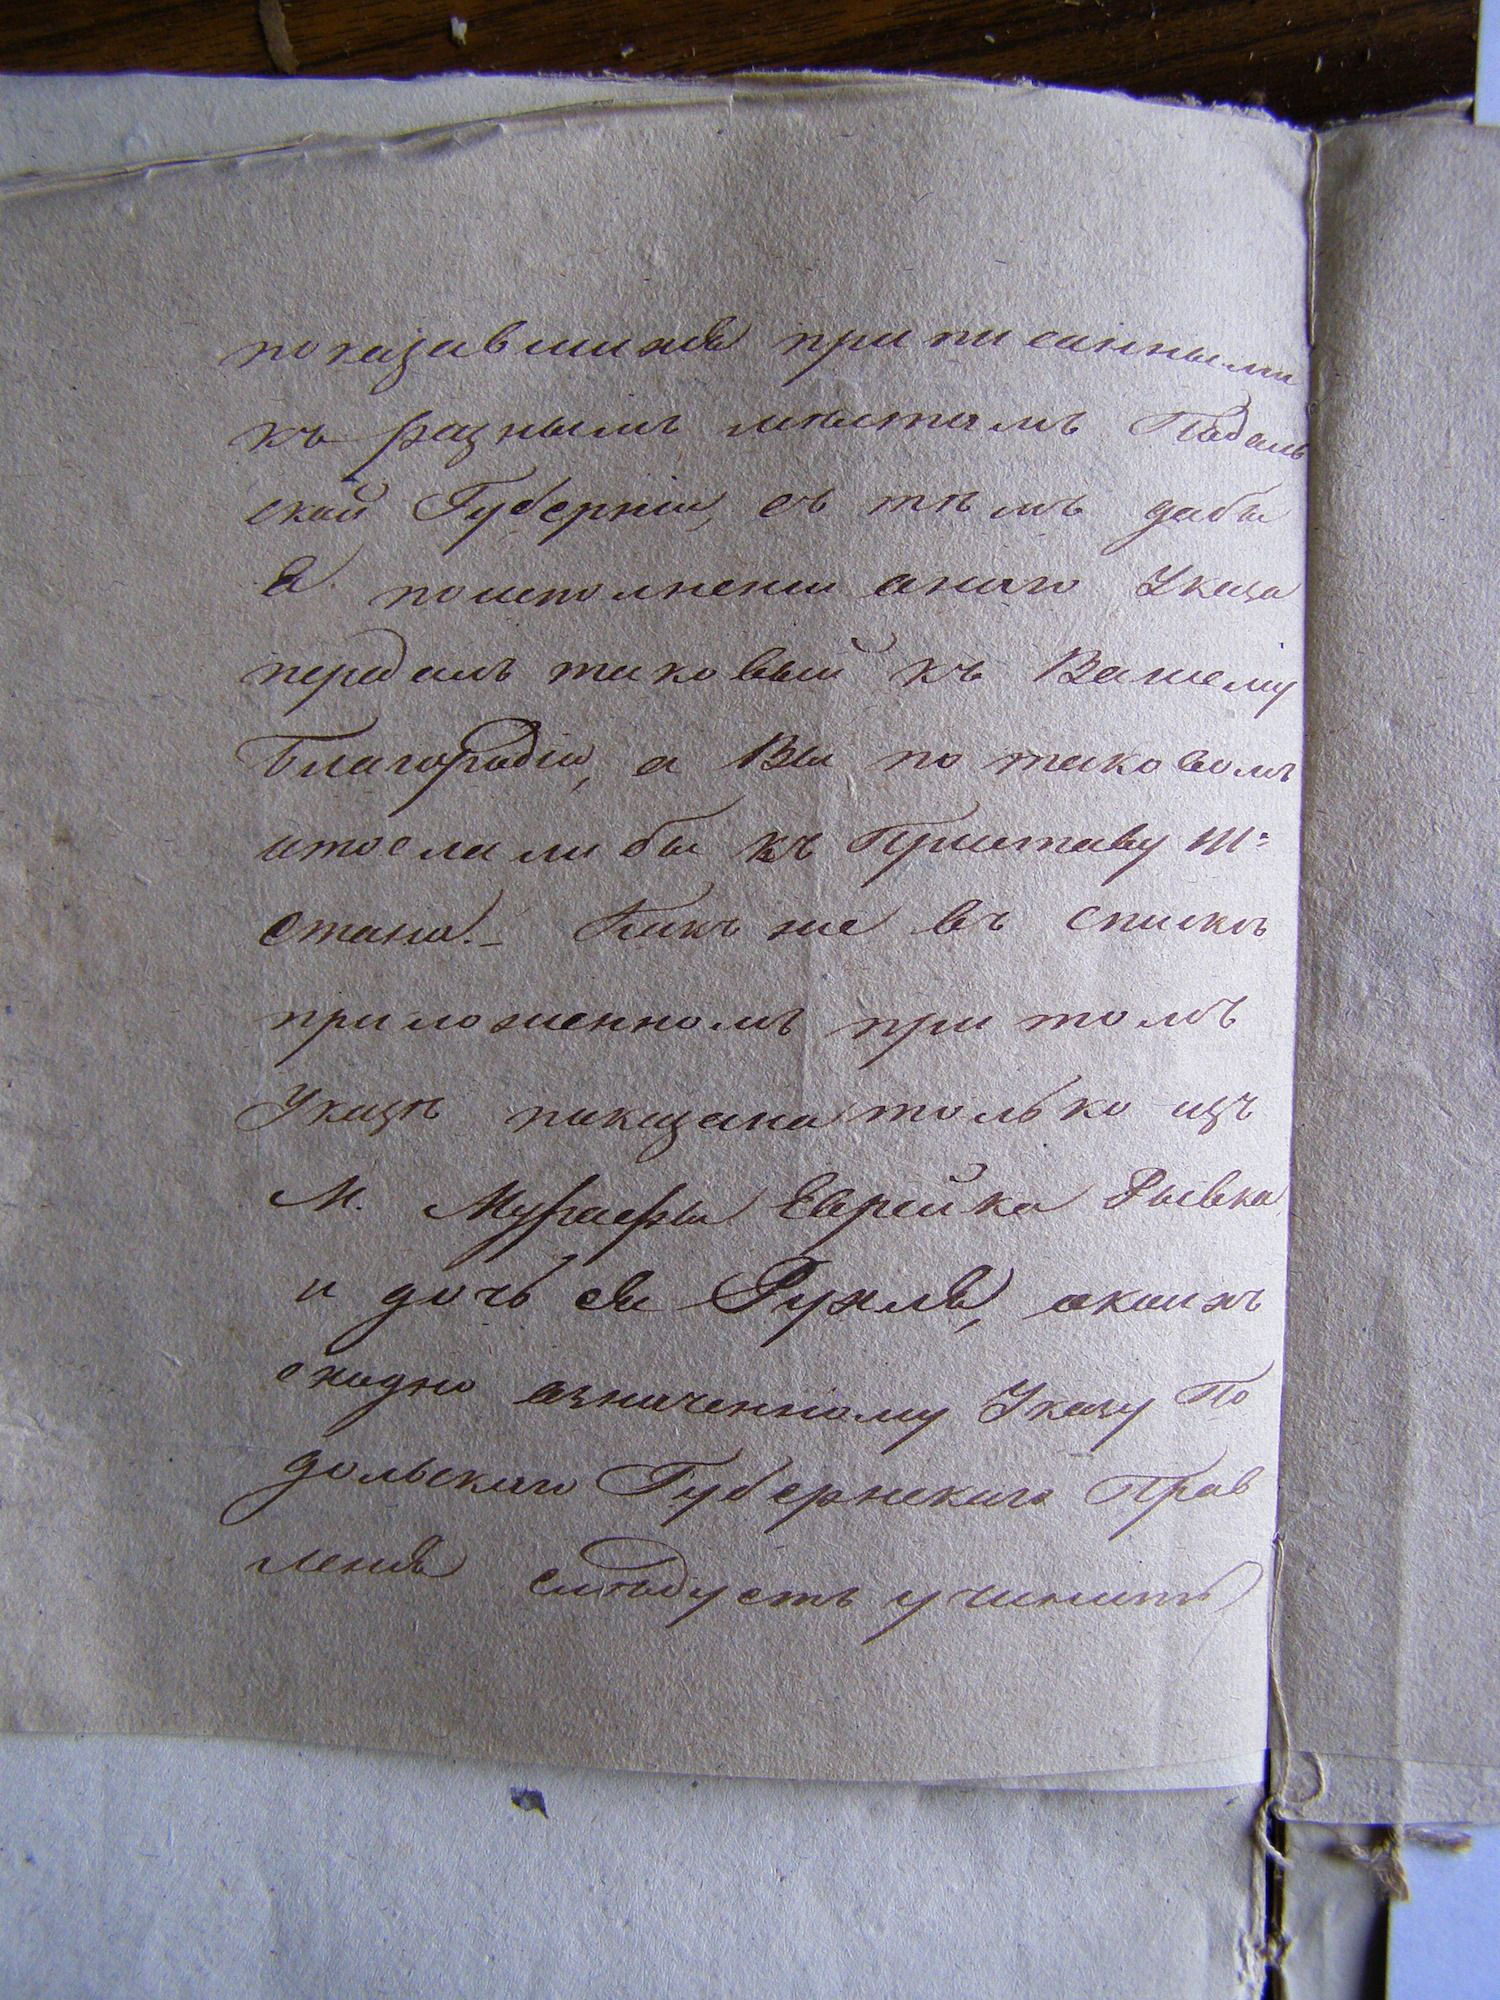 показавшихся приписанными
къ разнымъ мѣстамъ Подоль
ской Губерніи, съ тѣмъ дабы
Я по исполненіи онаго Указа
передалъ таковый къ Вашему
Благородію, а Вы по таковомъ
отослали бы къ Приставу III:
стана. Какъ же въ спискѣ
приложенномъ при томъ
Указѣ показана только изъ
М. Мурафы Еврейка Рывка
и дочь ея Рухля, о коихъ
сходно означенному Указу По
дольскаго Губернскаго Прав
ленія слѣдуетъ учинить